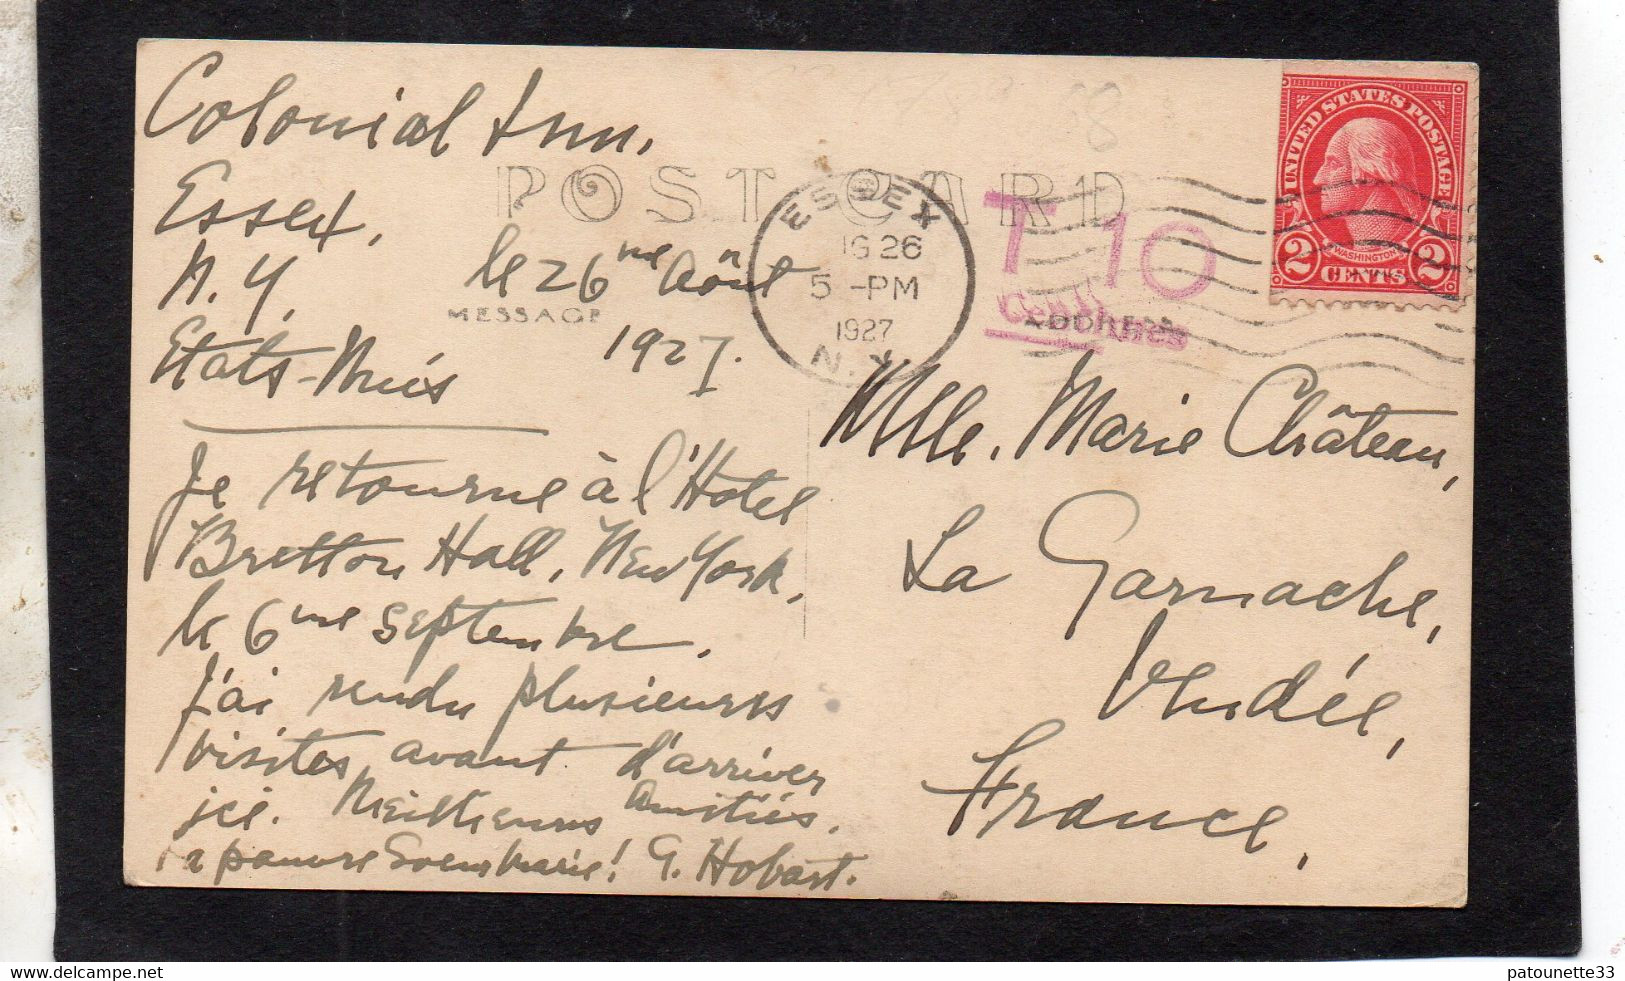 Colonial Inn,
Essex,
N.Y.
Etats-Unis
le 26me Août
1927.
POST CARD
MESSAGE
ADDRESS
ESSEX
26
5-PM
1927
N.Y.
T 10
Centimes
UNITED STATES POSTAGE
WASHINGTON
2 CENTS 2
Je retourne à l'Hotel
Bretton Hall, New York,
le 6me Septembre.
J'ai rendu plusieurs
visites avant d'arriver
ici. Meilleures Amitiés.
pauvre Soeur Marie! G. Hobart.
Mlle. Marie Château,
La Garnache,
Vendée,
France,
patounette33